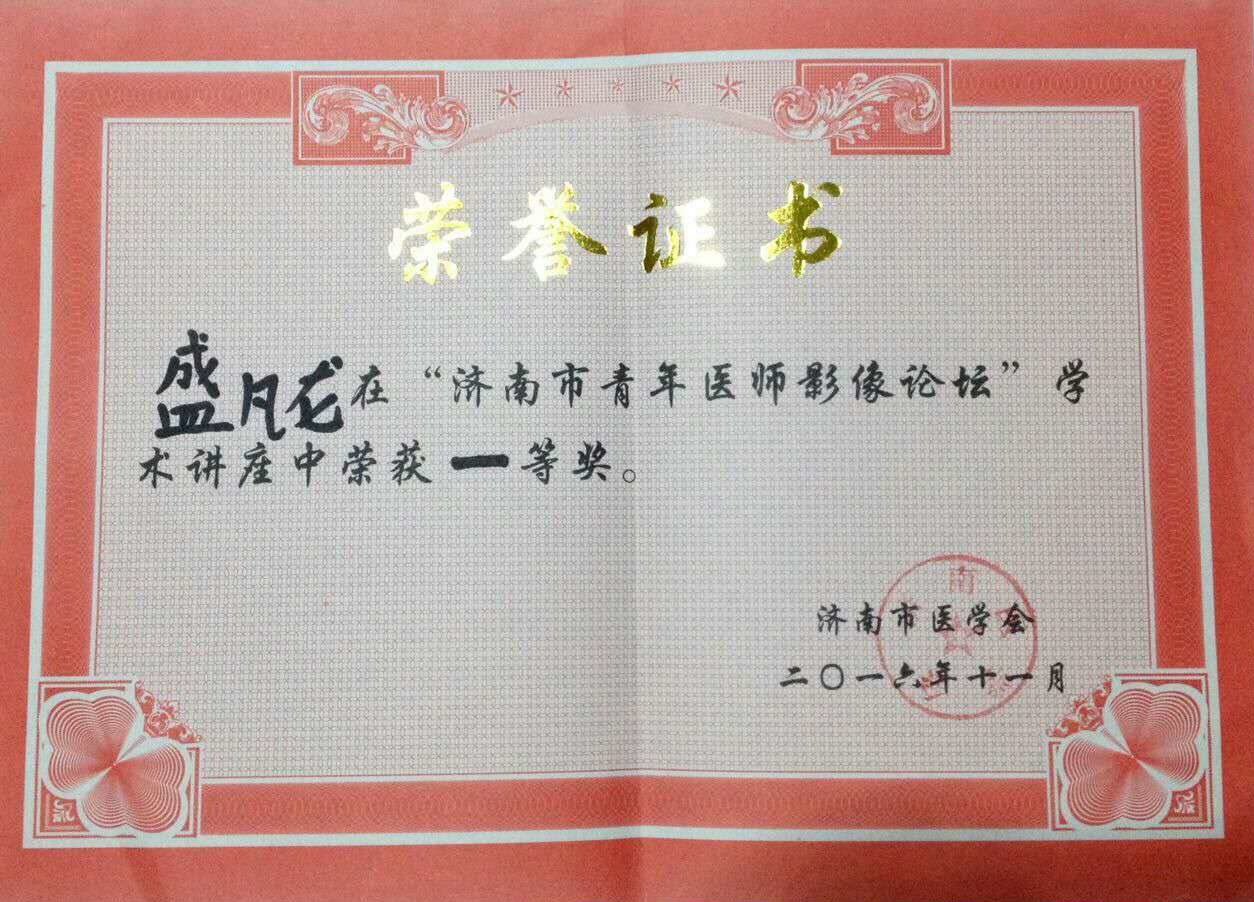 荣誉证书
盛凡龙在“济南市青年医师影像论坛”学
术讲座中荣获一等奖。
济南市医学会
二〇一六年十一月